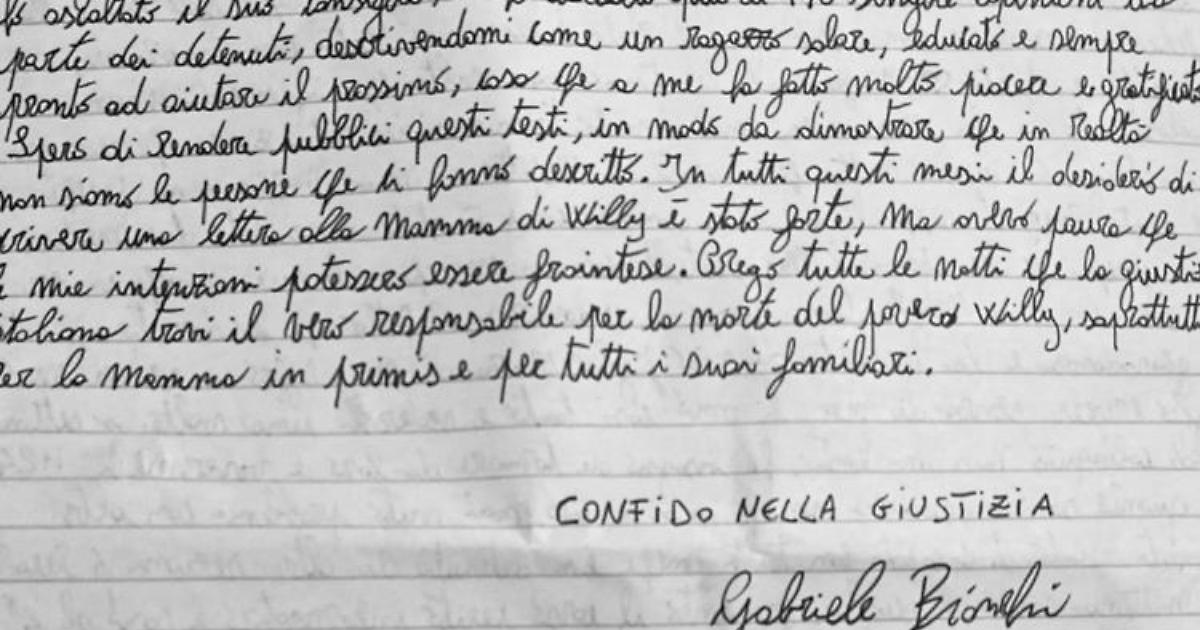 ascoltato il suo
parte dei detenuti, descrivendomi come un ragazzo solare, educato e sempre
pronto ad aiutare il prossimo, cosa che a me ha fatto molto piacere e gratificato
Spero di rendere pubblici questi testi, in modo da dimostrare che in realtà
non siamo le persone che ci hanno descritto. In tutti questi mesi il desiderio di
crivere una lettera alla Mamma di Willy è stato forte, ma avevo paura che
e mie intenzioni potessero essere fraintese. Prego tutte le notti che la giusti
italiana trovi il vero responsabile per la morte del povero Willy, soprattutt
er la mamma in primis e per tutti i suoi familiari.
CONFIDO NELLA GIUSTIZIA
Gabriele Bianchi